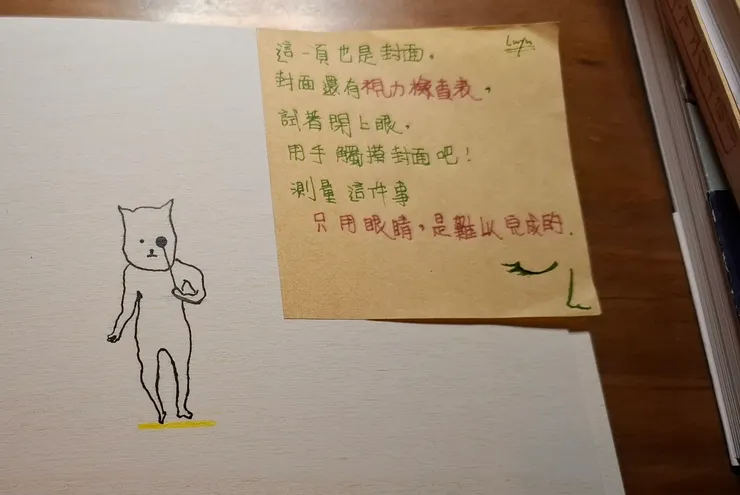 這一頁也是封面。
封面還有視力檢查表。
試著閉上眼。
用手觸摸封面吧！
測量這件事
只用眼睛，是難以完成的.